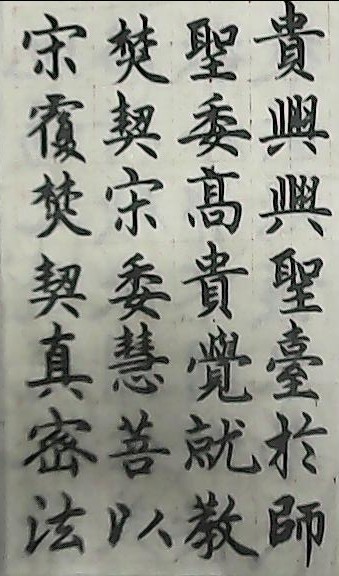 貴興興聖臺於師
聖委高貴覺就教
焚契宋委慧菩以
宋覆焚契真密法